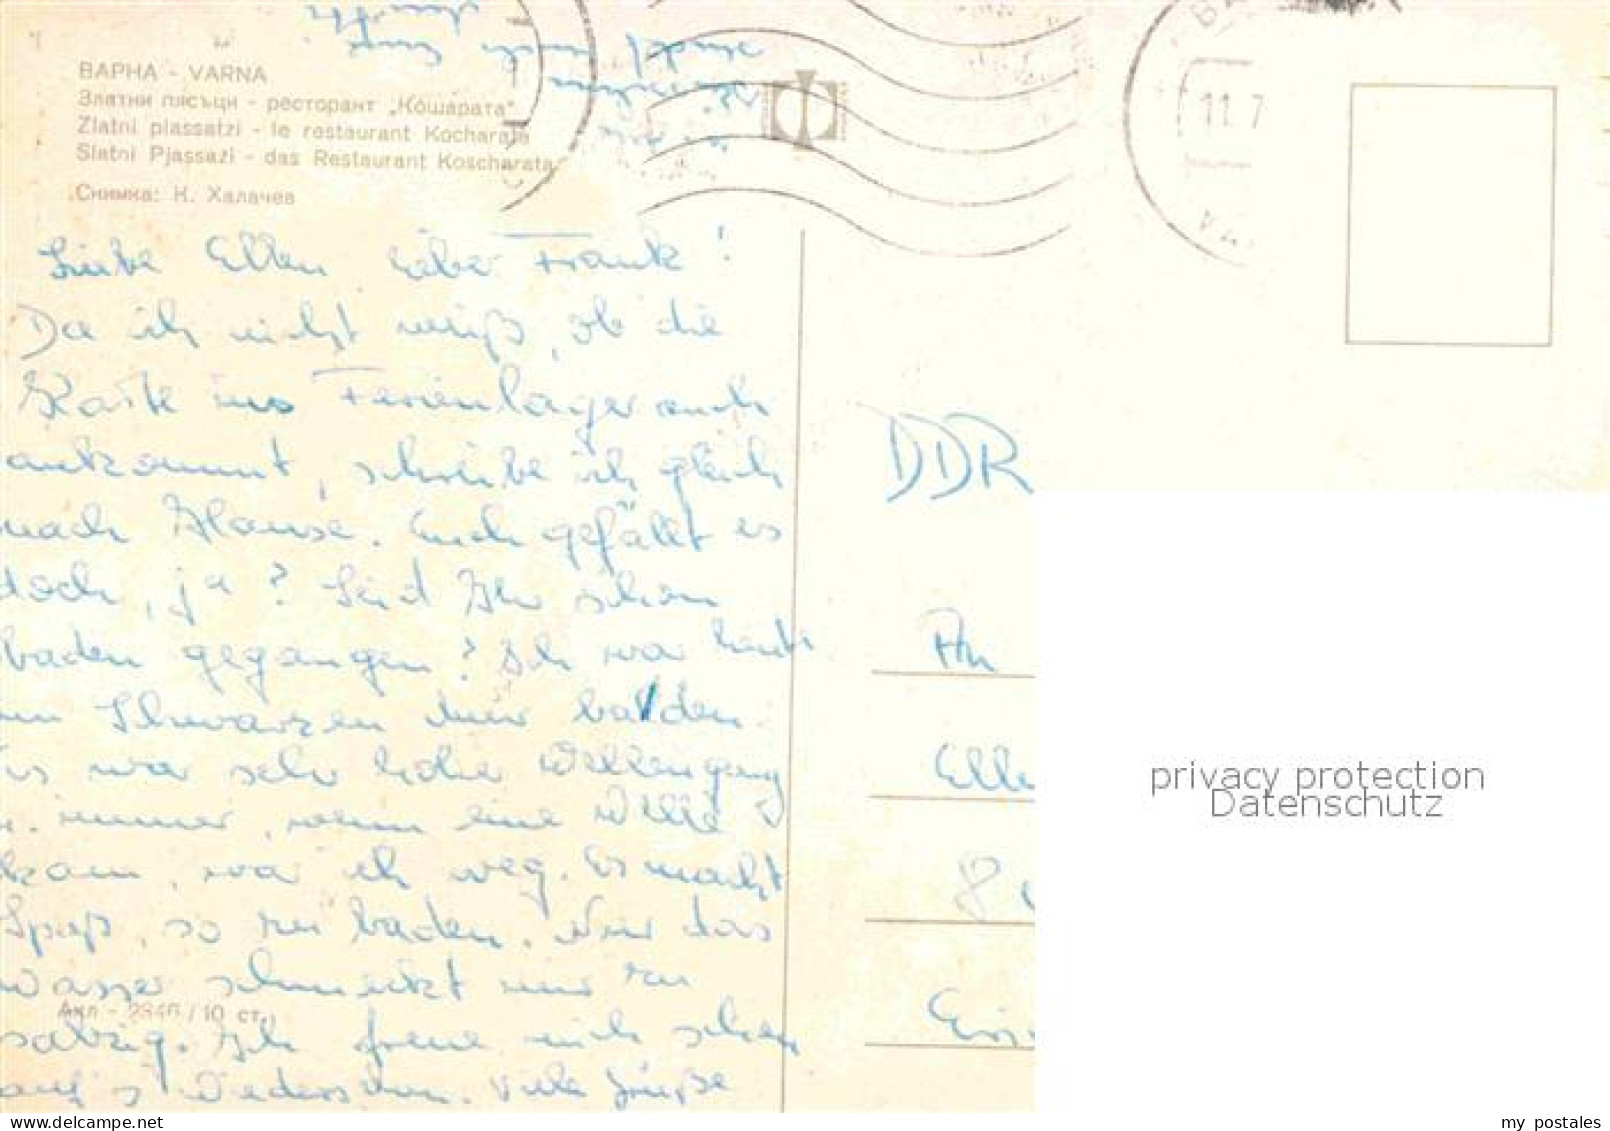 ВАРНА - VARNA
Златни пясъци - ресторант „Кошарата"
Zlatni piassatzi - le restaurant Kocharata
Slatni Pjassazi - das Restaurant Koscharata
Снимка: К. Халачев
11. 7
Liebe Ellen lieber Frank!
Da ich nicht weiß, ob die
Karte ins Ferienlager auch
ankommt, schreibe ich gleich
nach Hause. Euch gefällt es
doch, ja? Seid Ihr schon
baden gegangen? Ich war heute
im Schwarzen Meer baden.
Es war sehr hoher Wellengang
u. immer, wenn eine Welle
kam, war ich weg. Es macht
Spaß, so zu baden. Nur das
Wasser schmeckt mir zu
salzig. Ich freue mich schon
auf's Wiedersehen. Viele Grüße
Акл - 2346 / 10 ст.
DDR
An
Elle
8
Eis
privacy protection
Datenschutz
my postales